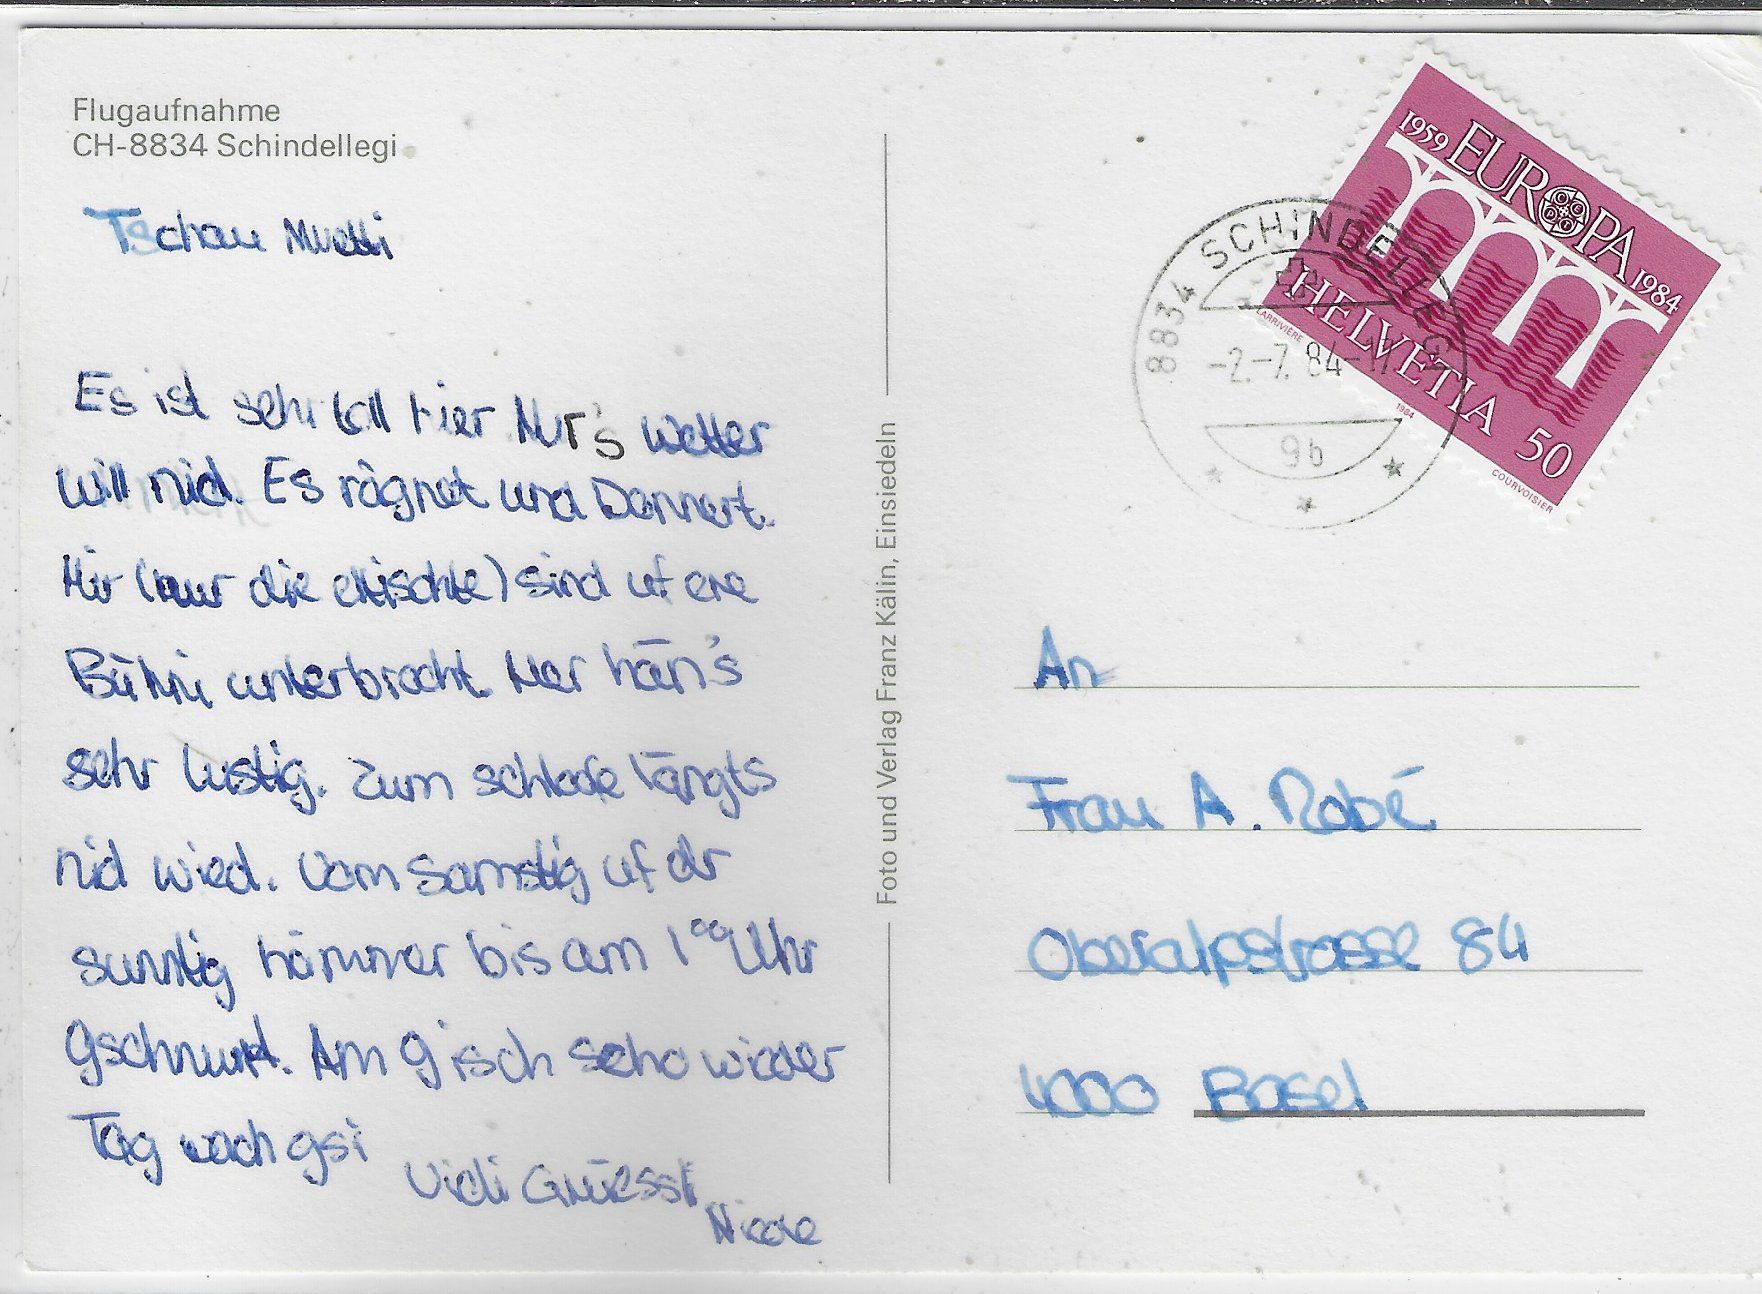 Flugaufnahme
CH-8834 Schindellegi
Tschau Muetti
Es ist sehr toll hier Nur's wetter
will nid. Es rägnet und Donnert.
Mir (nur die eltischte) sind uf ene
Bühni unterbracht. Mer hän's
sehr lustig. Zum schlofe längts
nid wied. Vom Samstig uf dr
sunntig hämmer bis am 1⁰⁰ Uhr
gschnurt. Am 9 isch scho wieder
Tag wach gsi
Vieli Grüessli
Nicole
Foto und Verlag Franz Kälin, Einsiedeln
8834 SCHINDELLEGI
-2.-7.84-17
9b
1959 EUROPA 1984
HELVETIA 50
LARRIVIÈRE 1984 COURVOISIER
An
Frau A. Robé
Oberalpstrasse 84
4000 Basel